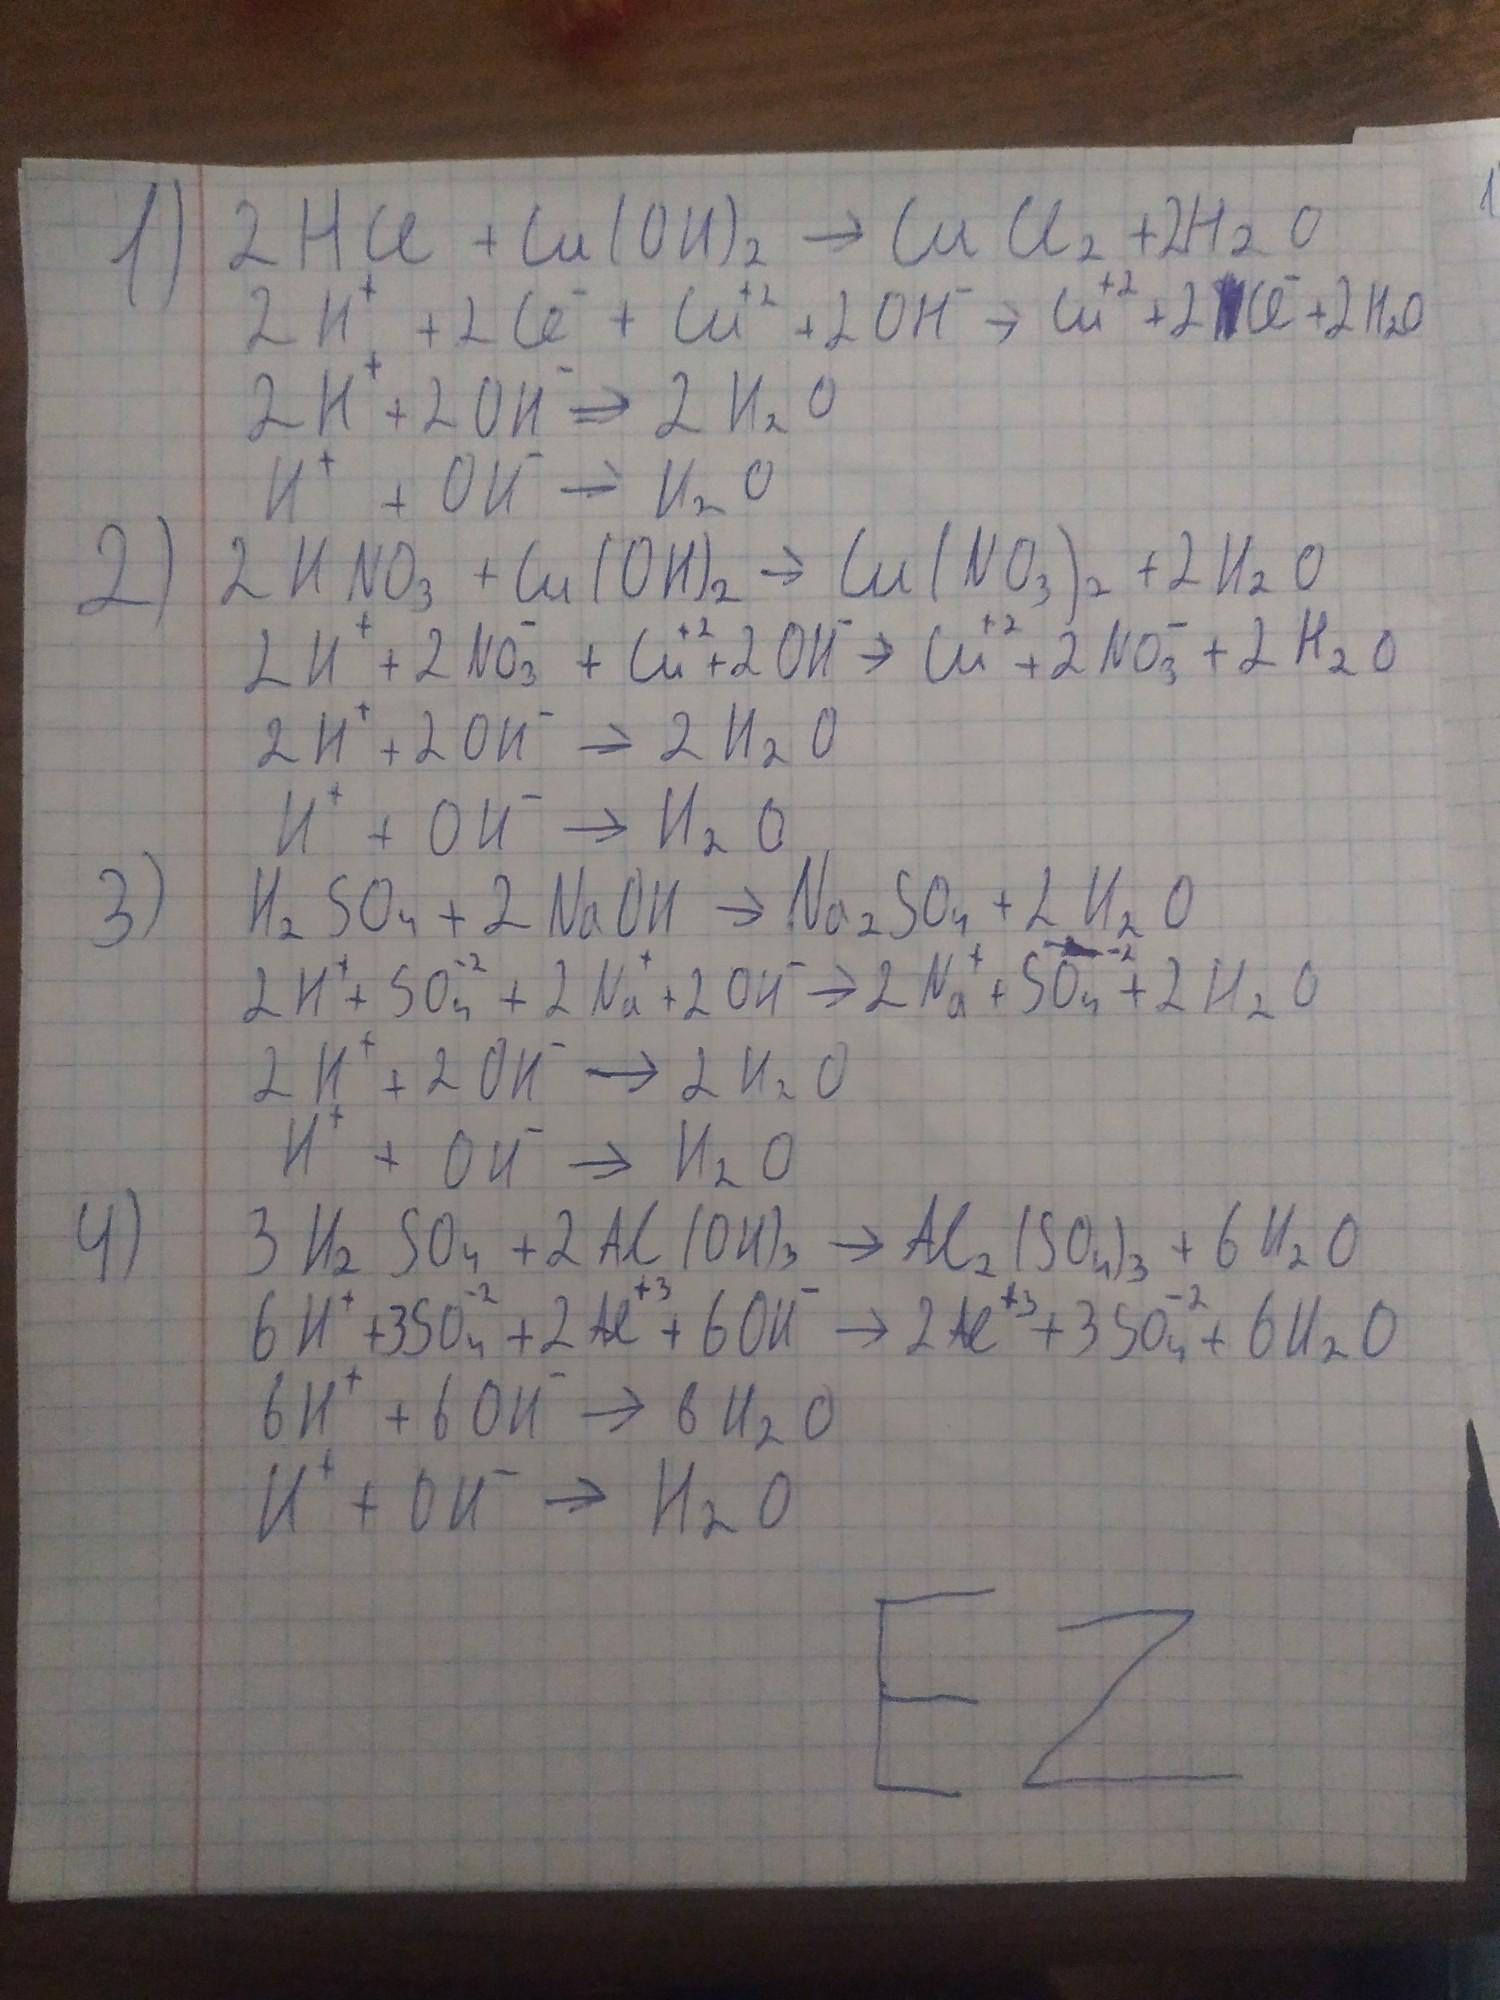 1) 2HCl + Cu(OH)₂ → CuCl₂ + 2H₂O
2H⁺ + 2Cl⁻ + Cu⁺² + 2OH⁻ → Cu⁺² + 2Cl⁻ + 2H₂O
2H⁺ + 2OH⁻ → 2H₂O
H⁺ + OH⁻ → H₂O
2) 2HNO₃ + Cu(OH)₂ → Cu(NO₃)₂ + 2H₂O
2H⁺ + 2NO₃⁻ + Cu⁺² + 2OH⁻ → Cu⁺² + 2NO₃⁻ + 2H₂O
2H⁺ + 2OH⁻ → 2H₂O
H⁺ + OH⁻ → H₂O
3) H₂SO₄ + 2NaOH → Na₂SO₄ + 2H₂O
2H⁺ + SO₄⁻² + 2Na⁺ + 2OH⁻ → 2Na⁺ + SO₄⁻² + 2H₂O
2H⁺ + 2OH⁻ → 2H₂O
H⁺ + OH⁻ → H₂O
4) 3H₂SO₄ + 2Al(OH)₃ → Al₂(SO₄)₃ + 6H₂O
6H⁺ + 3SO₄⁻² + 2Al⁺³ + 6OH⁻ → 2Al⁺³ + 3SO₄⁻² + 6H₂O
6H⁺ + 6OH⁻ → 6H₂O
H⁺ + OH⁻ → H₂O
EZ